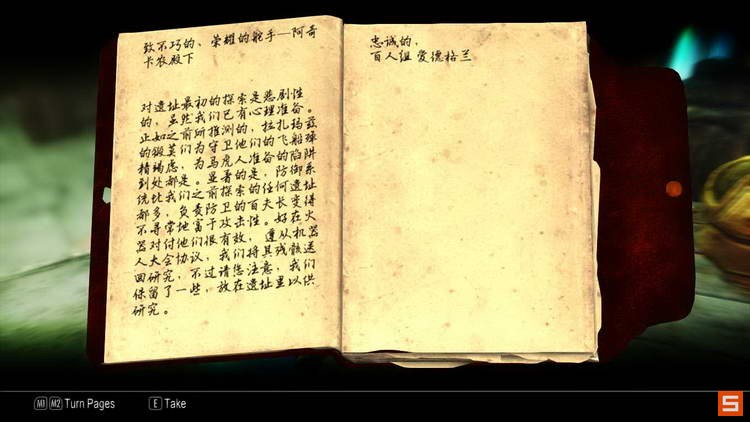 致不巧的、荣耀的舵手—阿奇
卡农殿下
对遗址最初的探索是悲剧性
的，虽然我们已有心理准备。
正如之前所推测的，拉扎玛兹
的锻莫们为守卫他们的飞船殚
精竭虑，为马虎人准备的陷阱
到处都是。显著的是，防御系
统比我们之前探索的任何遗址
都多，负责防卫的百夫长变得
不寻常地富于攻击性。好在火
器对付他们很有效，遵从机器
人大会协议，我们将其残骸送
回研究，不过请您注意，我们
保留了一些，放在遗址里以供
研究。
忠诚的，
百人组 爱德格兰
M1 M2 Turn Pages
E Take
S